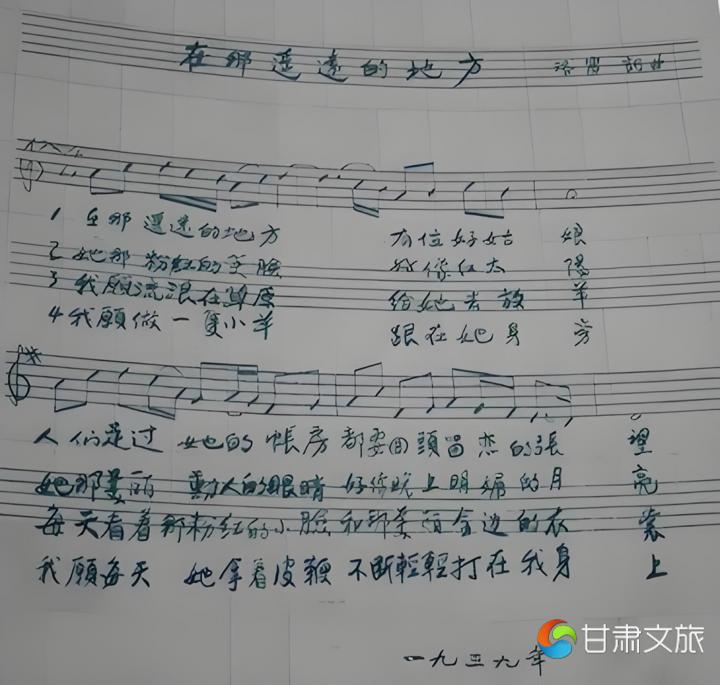 在那遥遠的地方 洛賓 詞曲
1 在那遥远的地方 有位好姑娘
2 她那粉红的笑臉 好像红太陽
3 我願流浪在草原 给她去放羊
4 我願做一隻小羊 跟在她身旁
人们走过 她的帳房 都要回頭留恋的張望
她那美丽 動人的眼睛 好像晚上明媚的月亮
每天看着那粉红的小臉 和那美丽金边的衣裳
我願每天 她拿着皮鞭 不断輕輕打在我身上
一九三九年
甘肃文旅